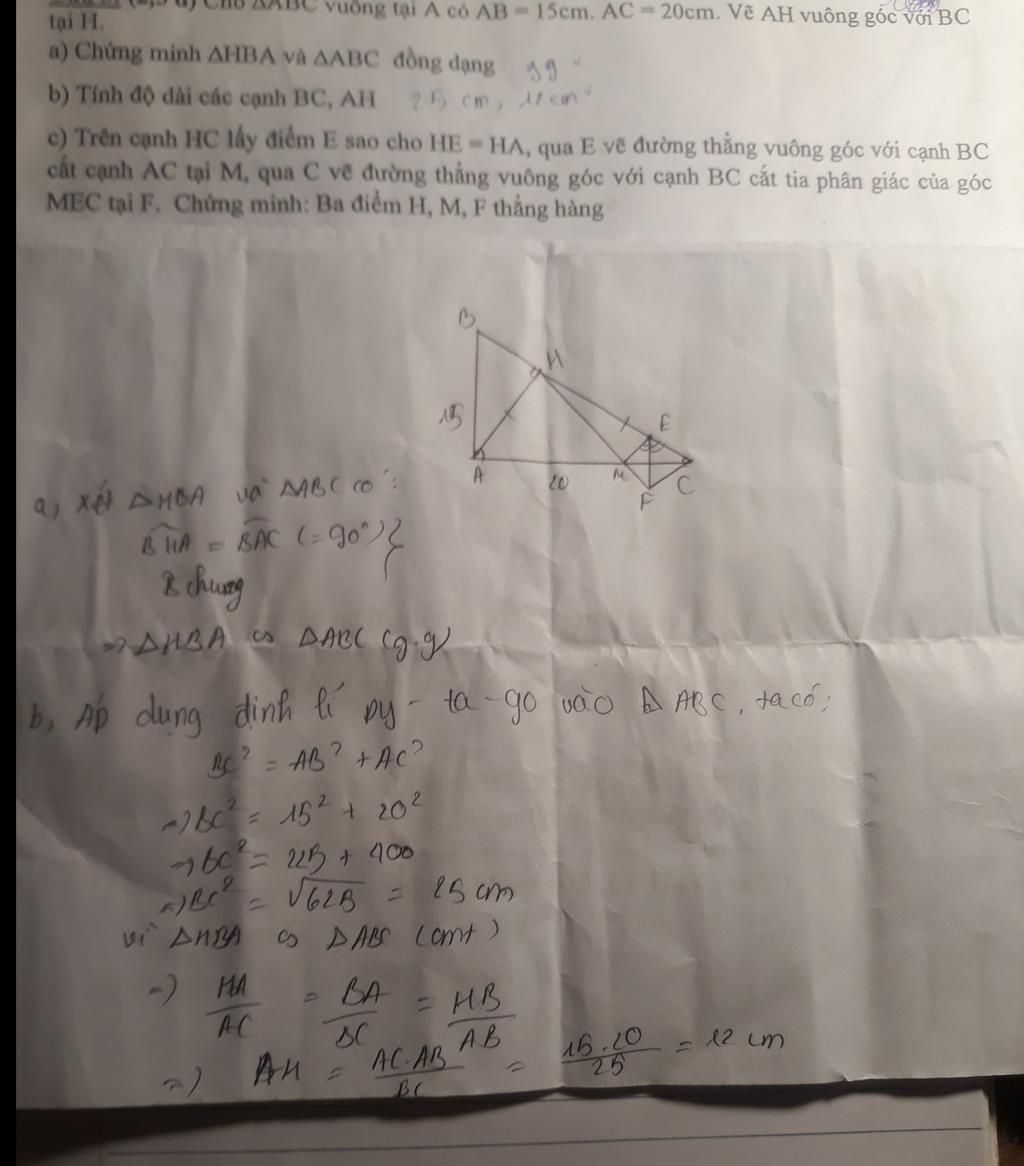 (2,5 đ) Cho ΔABC vuông tại A có AB = 15cm. AC = 20cm. Vẽ AH vuông góc với BC
tại H.
a) Chứng minh ΔHBA và ΔABC đồng dạng gg
b) Tính độ dài các cạnh BC, AH 25 cm, 12 cm
c) Trên cạnh HC lấy điểm E sao cho HE = HA, qua E vẽ đường thẳng vuông góc với cạnh BC
cắt cạnh AC tại M, qua C vẽ đường thẳng vuông góc với cạnh BC cắt tia phân giác của góc
MEC tại F. Chứng minh: Ba điểm H, M, F thẳng hàng
B
H
15
E
A
20
M
C
F
a, xét ΔHBA và ΔABC có:
BHA = BAC (=90°) }
B chung
=> ΔHBA ∽ ΔABC (g.g)
b, Áp dụng định lí py-ta-go vào ΔABC, ta có:
BC² = AB² + AC²
=> BC² = 15² + 20²
=> BC² = 225 + 400
=> BC² = √625 = 25 cm
vì ΔHBA ∽ ΔABC (cmt)
=> HA/AC = BA/BC = HB/AB
=> AH = AC.AB/BC = 15.20/25 = 12 cm